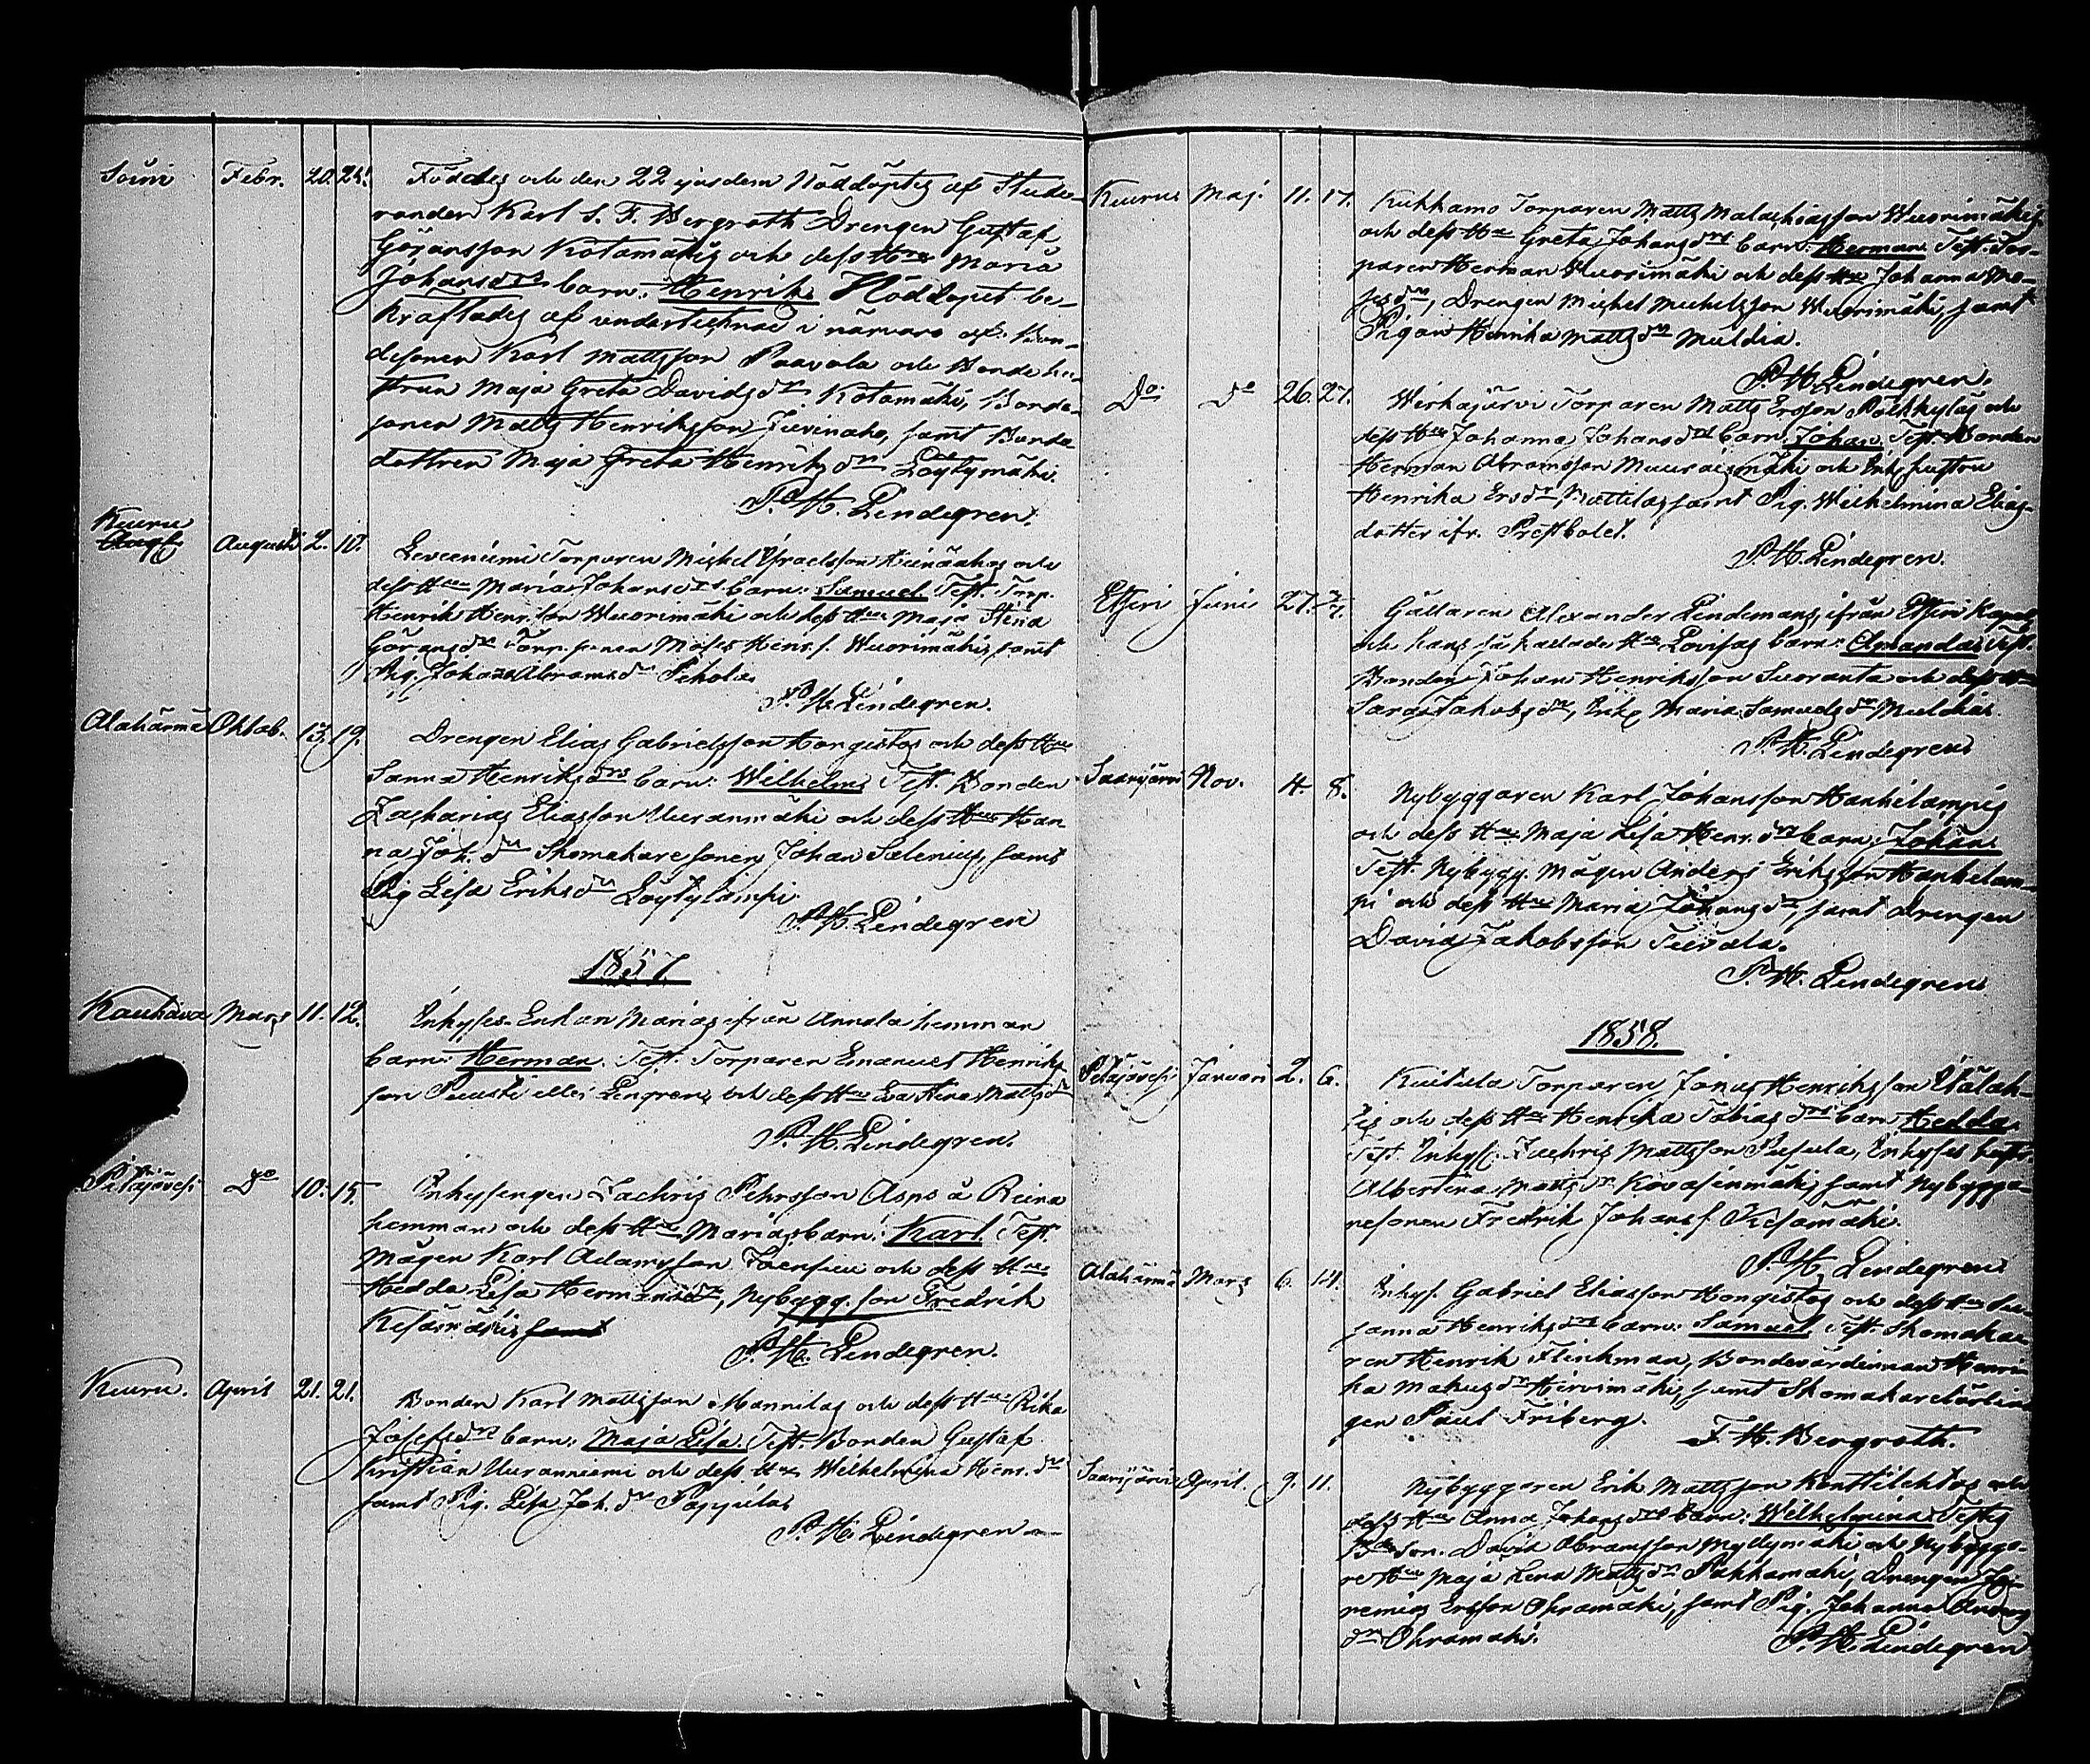 Soini Febr. 20. 24. Föddes och den 22 ejusdem Nöddöptes af Stude-
randen Karl S. F. Bergroth Drengen Gustaf
Göransson Kotamäkis och dess Hus Maria
Johansdrs barn: Henrik. Nöddopet be-
kräftades af undertecknad i närvaro af: Bon-
desonen Karl Mattsson Paavola och Bondehu-
strun Maja Greta Davidsdr Kotamäki, Bonde-
sonen Matts Henriksson samt Bonde
dottren Maja Greta Henriksdr Löytymäki.
P. H. Lindegren.
Keuru
Augusti 2. 10. Leväniemi Torparen Mickel Israelsson och
dess Hus Maria Johansdrs barn: Samuel. Test. Torp.
Henrik Henr.son Wuorimäki och dess Hus Maja Stina
Göransdr Torp.sonen Moses Henr.s. Wuorimäki, samt
Pig. Johana Abramsdr Pihola.
P. H. Lindegren.
Alahärmä Oktob. 13. 19. Drengen Elias Gabrielsson Hongistos och dess Hus
Sanna Henriksdrs barn: Wilhelm. Test. Bonden
Zacharias Eliasson Uuranmäki och dess Hus Han-
na Joh.dr Skomakaresonen Johan Salenius, samt
Pig Lisa Eriksdr Löytylampi.
P. H. Lindegren
1857.
Kauhava Mars 11. 12. Inhyses Enkan Marias ifrån Annala hemman
barn: Herman. Test. Torparen Emanuel Henriks
son eller och dess Hus Eva Stina Mattsdr
P. H. Lindegren.
Petäjävesi Do 10. 15. Inhysingen Zachris Pehrsson Asps å Reina
hemman och dess Hus Marias barn: Karl. Test.
Mågen Karl Adamsson och dess Hus
Hedda Lisa Hermansdr, Nybygg. son Fredrik
Kesämäki, samt
P. H. Lindegren.
Keuru. April 21. 21. Bonden Karl Mattsson Mannilas och dess Hus Rika
Josefsdrs barn: Maja Lisa. Test. Bonden Gustaf
Kristian Uuranniemi och dess Hus Wilhelmina Henr.dr
samt Pig. Lisa Joh.dr Pappila.
P. H. Lindegren
Keuru Maj. 11. 17. Kukkamo Torparen Matts Malachiasson Wuorimäkis
och dess Hus Greta Johansdrs barn: Herman. Test. Tor-
paren Herman Wuorimäki och dess Hus Johanna Mo-
sesdr, Drengen Mickel Mickelsson Wuorimäki, samt
Pigan Henrika Mattsdr Muldia.
P. H. Lindegren.
Do Do 26. 27. Torparen Matts Ersson Pölkkyläs och
dess Hus Johanna Johansdrs barn: Johan. Test. Bonden
Herman Abramsson och Enk. hustru
Henrika Ersdr Mattila, samt Pig. Wilhelmina Elias-
dotter ifr. Prestbolet.
P. H. Lindegren.
Etseri Juni 27. 7/7. Gällaren Alexander Lindemans, ifrån Etseri Kapell
och hans så kallade Hus Lovisas barn: Amanda. Test.
Bonden Johan Henriksson Suoranta och dess Hus
Sara Jakobsdr, Enk. Maria Samuelsdr Muldia.
P. H. Lindegren
Saarijärvi Nov. 4. 8. Nybyggaren Karl Johansson Hankilampis
och dess Hus Maja Lisa Henr.drs barn: Johan.
Test. Nybygg. Mågen Anders Eriksson Hankilam-
pi och dess Hus Maria Johansdr, samt Drengen
David Jakobsson
P. H. Lindegren
1858.
Petäjävesi Januari 2. 6. Kuitula Torparen Jonas Henriksson
och dess Hus Henrika Tobiasdrs barn Hedda.
Test. Inhys. Zachris Mattsson Inhyses hustr.
Albertina Mattsdr Kovasinmäki, samt Nybygga-
resonen Fredrik Johans. Kesämäki.
P. H. Lindegren
Alahärmä Mars 6. 14. Inhys. Gabriel Eliasson Hongistos och dess Hus Su-
sanna Henriksdrs barn: Samuel. Test. Skomaka-
ren Henrik Flinkman, Bondevärdinnan Henri-
ka Hirvimäki, samt Skomakarelärlin-
gen Paul Friberg.
F. H. Bergroth.
Saarijärvi April. 9. 11. Nybyggaren Erik Mattsson och
dess Hus Anna Johansdrs barn: Wilhelmina. Testes
B. son. David Abramsson Myllymäki och Nybygga-
re Hus Maja Lena Mattsdr Pukkamäki, Drengen Je-
remias Ersson Ohramäki, samt Pig. Johanna
dr Ohramäki.
P. H. Lindegren